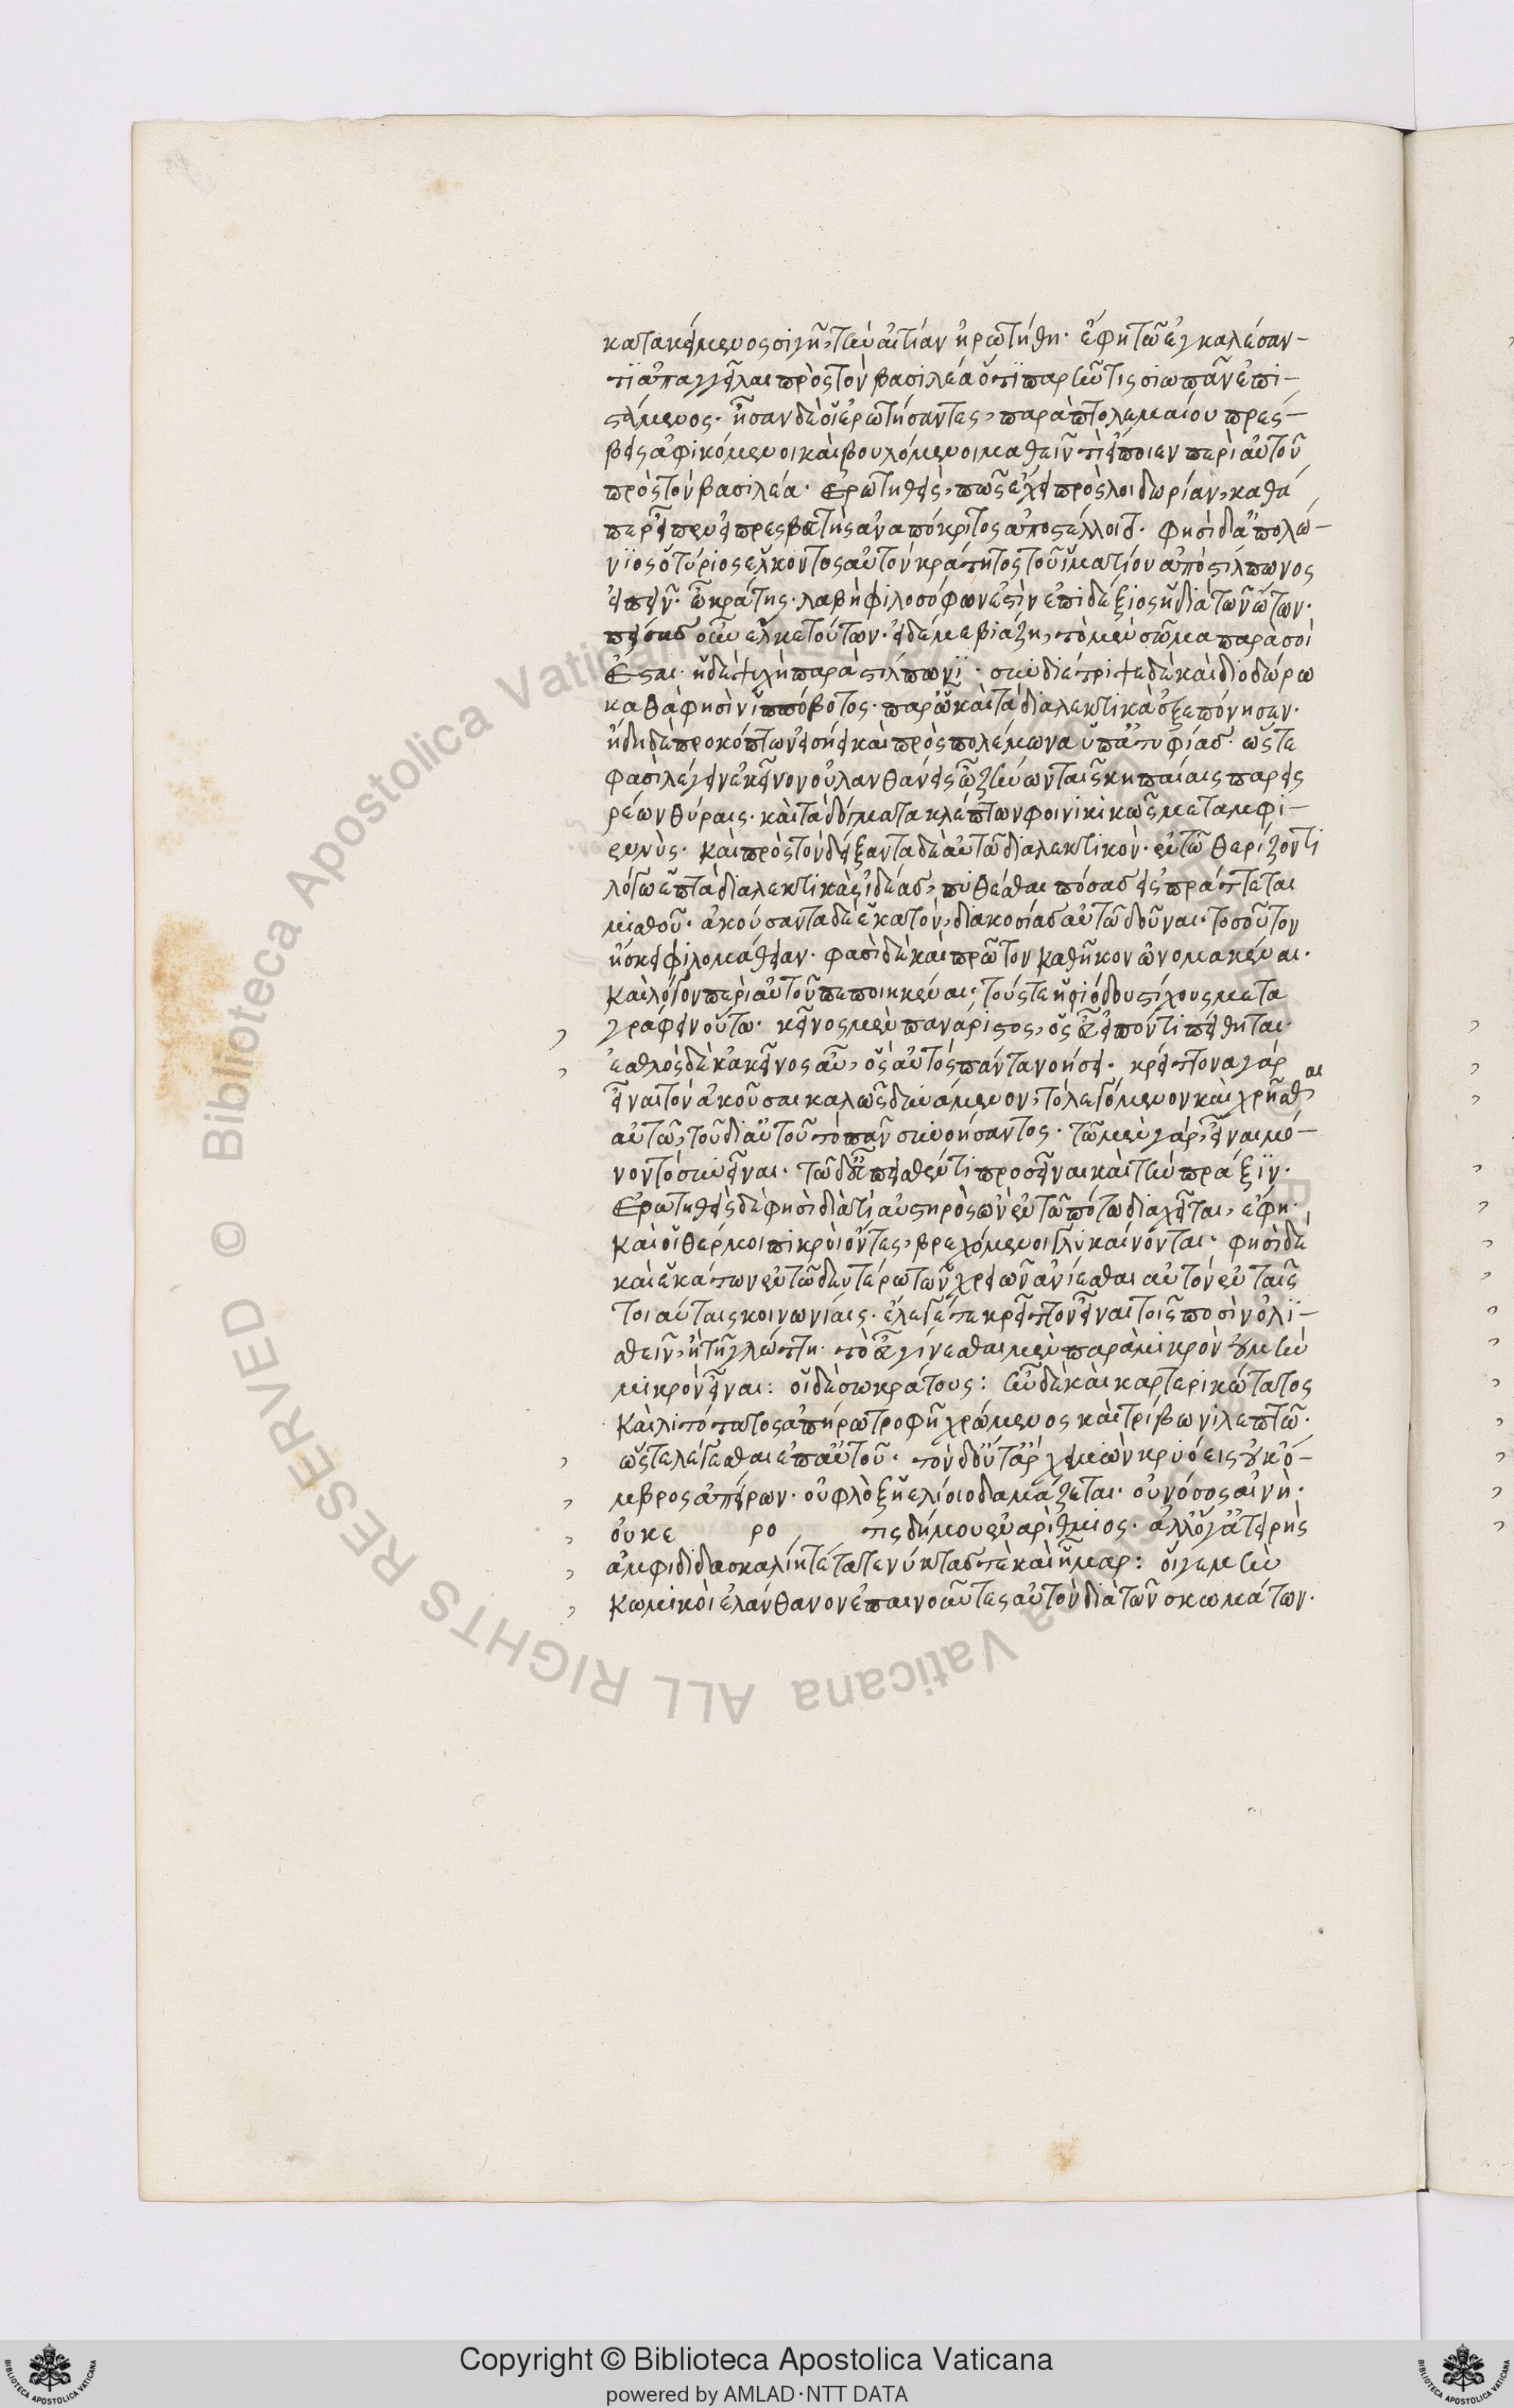 κατακείμενος σιγῆ, τὴν αἰτίαν ἠρωτήθη· ἔφη τῶ ἐγκαλέσαν-
τϊ ἀπαγγεῖλαι πρὸς τὸν βασιλέα ὅτϊ παρῆν τις σιωπᾶν ἐπι-
στάμενος· ἦσαν δὲ οἱ ἐρωτήσαντες, παρὰ πτολεμαίου πρέσ-
βεις ἀφικόμενοι καὶ βουλόμενοι μαθεῖν τί εἴποιεν περὶ αὐτοῦ
πρὸς τὸν βασιλέα· Ἐρωτηθεὶς, πῶς ἔχει πρὸς λοιδωρίαν, καθά
περ εἶπεν εἰ πρεσβετὴς ἀναπόκριτος ἀποστέλλοιτο· φησὶ δ' ἀπολώ-
νϊος ὁ τύριος ἕλκοντος αὐτὸν κράτητος τοῦ ἱματίου ἀπὸ στίλπωνος
εἰπεῖν· ὦ κράτης· λαβὴ φιλοσόφων ἐστὶν ἐπιδέξιος ἡ διὰ τῶν ὤτων·
πείσας οὖν ἕλκε τούτων· εἰ δέ με βιάζη, τὸ μὲν σῶμα παρὰ σοὶ
Ἔσται· ἡ δὲ ψυχὴ παρὰ στίλπωνϊ· συνδιέτριψε δὲ καὶ διοδώρω
καθά φησὶν ἱππόβοτος· παρ' ὧ καὶ τὰ διαλεκτικὰ ἐξεπόνησεν·
ἤδη δὲ προκόπτων εἰσήει καὶ πρὸς πολέμωνα ὑπ' ἀτυφίας· ὥστε
φασὶ λέγειν ἐκεῖνον οὐ λανθάνεις ὦ ζήνων ταῖς κηπαίαις παρεισ
ρέων θύραις· καὶ τὰ δόγματα κλέπτων φοινικικῶς μεταμφι-
εννὺς· Καὶ πρὸς τὸν δείξαντα δὲ αὐτῶ διαλεκτικὸν· ἐν τῶ θερίζοντι
λόγω ἑπτὰ διαλεκτικὰς ἰδέας, πυθέσθαι πόσας εἰσπράττεται
μισθοῦ· ἀκούσαντα δὲ ἑκατὸν, διακοσίας αὐτῶ δοῦναι· τοσοῦτον
ἤσκει φιλομάθειαν· φασὶ δὲ καὶ πρῶτον καθῆκον ὠνομακέναι·
Καὶ λόγον περὶ αὐτοῦ πεποιηκέναι· τούς τε ἡσιόδου στίχους μετα
γράφειν οὕτω· κεῖνος μὲν πανάριστος, ὃς εὖ εἰπόντι πείθηται·
ἐσθλὸς δὲ κἀκεῖνος αὖ, ὃς αὐτὸς πάντα νοήσει· κρείττονα γάρ
εἶναι τὸν ἀκοῦσαι καλῶς δυνάμενον, τὸ λεγόμενον καὶ χρῆσθαι
αὐτῶ, τοῦ δι' αὑτοῦ τὸ πᾶν συνοήσαντος· τῶ μὲν γάρ, εἶναι μό-
νον τὸ συνεῖναι· τῶ δ' εὖ πεισθέντι προσεῖναι καὶ τὴν πρᾶξϊν·
Ἐρωτηθεὶς δέ φησι διὰ τί αὐστηρὸς ὢν ἐν τῶ πότω διαχεῖται, ἔφη·
Καὶ οἱ θέρμοι πικροὶ ὄντες, βρεχόμενοι γλυκαίνονται· φησὶ δὲ
καὶ ἑκάτων ἐν τῶ δευτέρω τῶν χρειῶν ἀνίεσθαι αὐτὸν ἐν ταῖς
τοιαύταις κοινωνίαις· ἔλεγέ τε κρεῖττον εἶναι τοῖς ποσὶν ὀλϊ-
σθεῖν, ἢ τῆ γλώττη· τὸ εὖ γίνεσθαι μὲν παρὰ μικρὸν οὐ μὴν
μικρὸν εἶναι: οἱ δὲ σωκράτους: ἦν δὲ καὶ καρτερικώτατος
Καὶ λιτότατος ἀπήρω τροφῆ χρώμενος καὶ τρίβωνι λεπτῶ·
ὥστε λέγεσθαι ἐπ' αὐτοῦ· τὸν δ' οὔτ' ἂρ χειμὼν κρυόεις οὐκ ὄ-
μβρος ἀπείρων· οὐ φλὸξ ἠελίοιο δαμάζεται· οὐ νόσος αἰνὴ·
οὐκ ε ρο τις δήμου ἐναρίθμιος· ἀλλ' ὅγ' ἀτειρὴς
ἀμφὶ διδασκαλίη τέταται νύκτας τὲ καὶ ἦμαρ: οἵ γε μὴν
Κωμικοὶ ἐλάνθανον ἐπαινοῦντες αὐτὸν διὰ τῶν σκωμάτων·
Copyright © Biblioteca Apostolica Vaticana
powered by AMLAD·NTT DATA